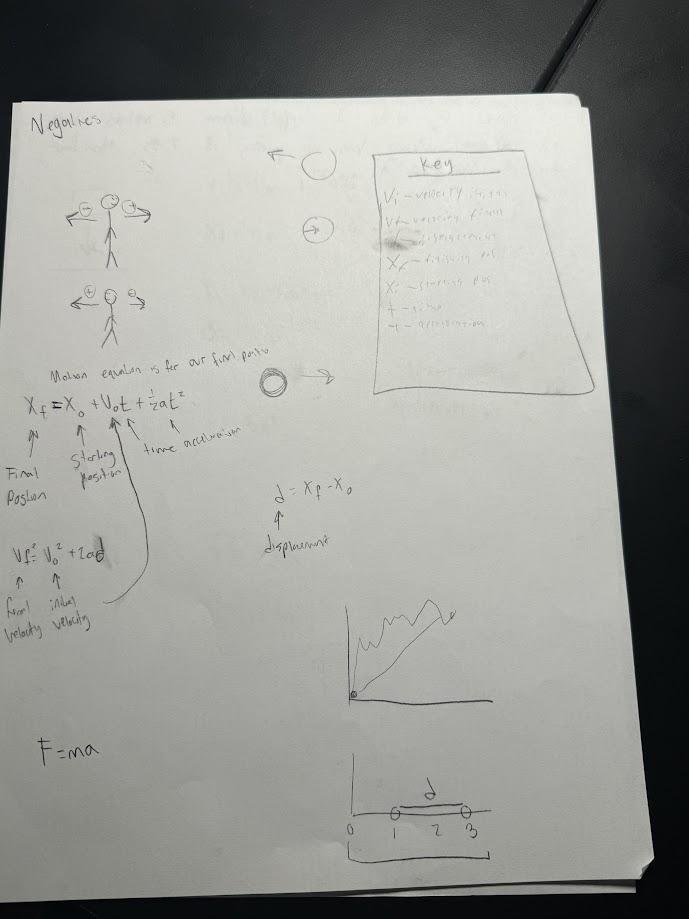 Negatives
⊖ ⊕
⊕ ⊖
Key
Vi - velocity initial
Vf - velocity final
d - displacement
Xf - finishing pos
Xi - starting pos
t - time
a - acceleration
Motion equation is for our final position
Xf = X₀ + V₀t + ½at²
Final
Position
Starting
position
time
acceleration
d = Xf - X₀
displacement
Vf² = V₀² + 2ad
final
velocity
initial
velocity
F=ma
d
0 1 2 3